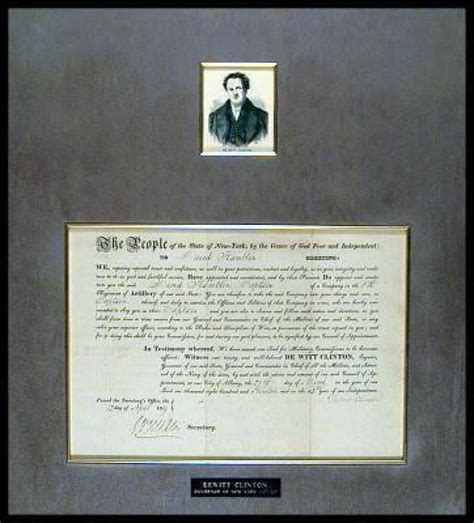 DE WITT CLINTON
The People of the State of New-York, by the Grace of God Free and Independent:
TO David Hamblin GREETING:
WE, reposing especial trust and confidence, as well in your patriotism, conduct and loyalty, as in your integrity and readi-
ness to do us good and faithful service, Have appointed and constituted, and by these Presents Do appoint and consti-
tute you the said David Hamblin Captain of a Company in the
Regiment of Artillery of our said State: You are therefore to take the said Company into your charge and care, as
Captain thereof, and duly to exercise the Officers and Soldiers of that Company in arms, who are hereby com-
manded to obey you as their Captain and you are also to observe and follow such orders and directions, as you
shall from time to time receive from our General and Commander in Chief of the Militia of our said State, or any
other your superior officer, according to the Rules and Discipline of War, in pursuance of the trust reposed in you; and for
so doing this shall be your Commission, for and during our good pleasure, to be signified by our Council of Appointment.
In Testimony whereof, We have caused our Seal for Military Commissions to be hereunto
affixed: Witness our trusty and well-beloved DE WITT CLINTON, Esquire,
Governor of our said State, General and Commander in Chief of all the Militia, and Admi-
ral of the Navy of the same, by and with the advice and consent of our said Council of Ap-
pointment, at our City of Albany, the day of March in the year of our
Lord one thousand eight hundred and and in the year of our Independence.
Passed the Secretary's Office, the
day of April
Secretary.
DEWITT CLINTON
GOVERNOR OF NEW YORK